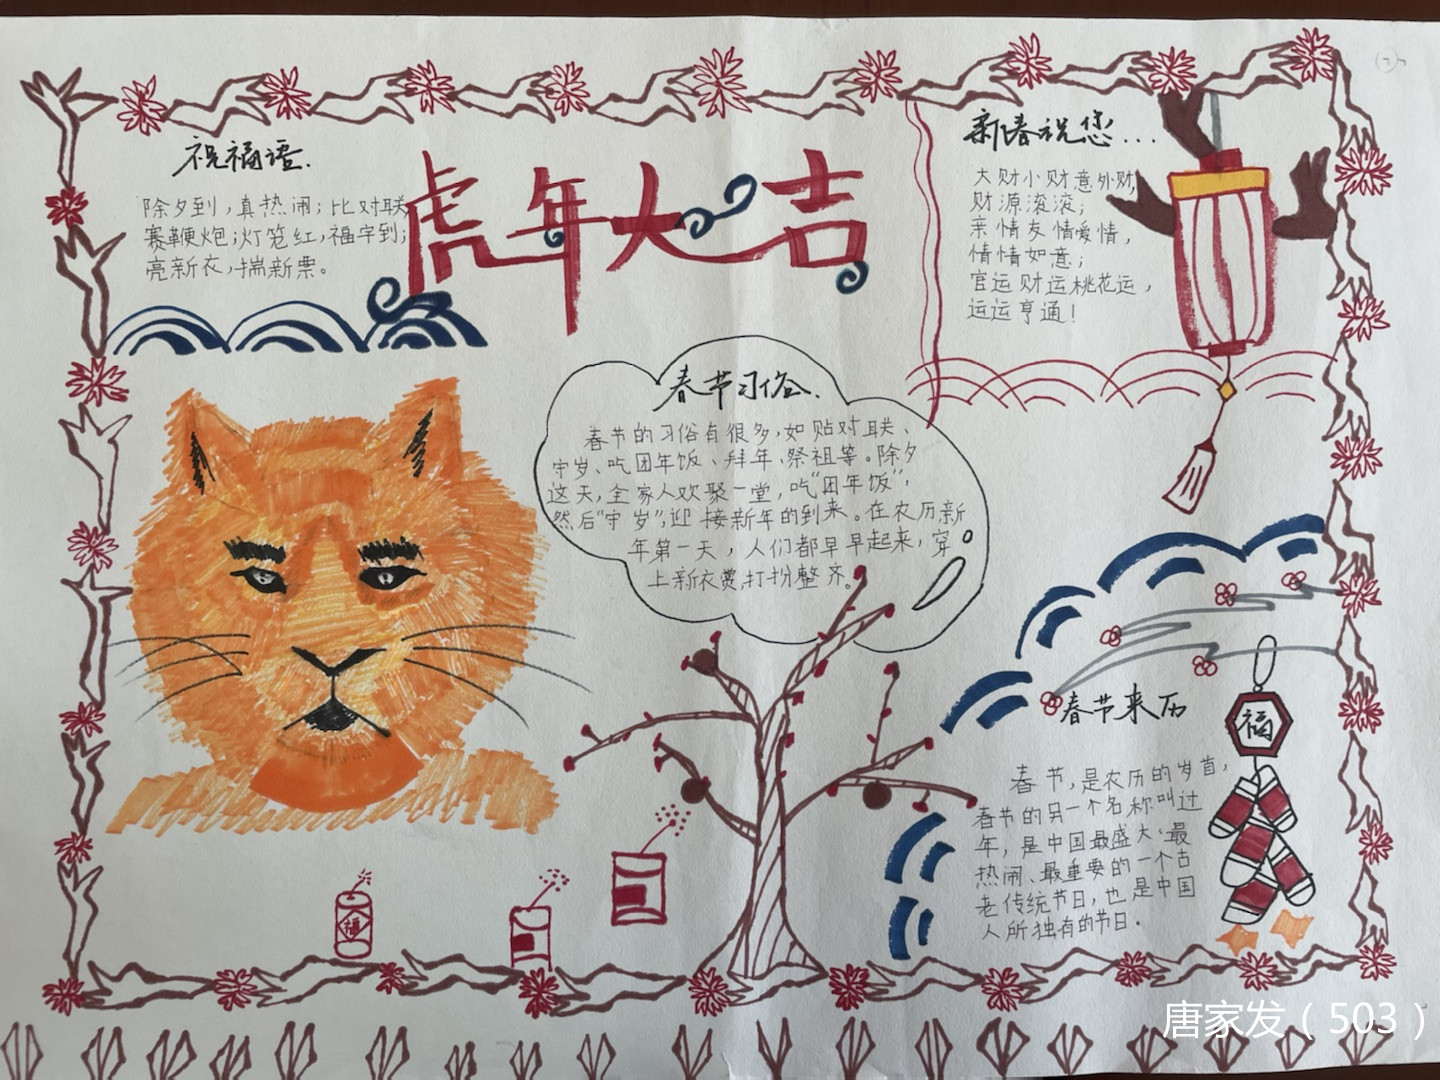 祝福语.
除夕到,真热闹;比对联
赛鞭炮;灯笼红,福字到;
亮新衣,揣新票。
虎年大吉
新春祝您...
大财小财意外财,
财源滚滚;
亲情友情爱情,
情情如意;
官运财运桃花运,
运运亨通!
春节习俗.
春节的习俗有很多,如贴对联、
守岁、吃团年饭、拜年、祭祖等。除夕
这天,全家人欢聚一堂,吃“团年饭”,
然后“守岁”,迎接新年的到来。在农历新
年第一天,人们都早早起来,穿
上新衣,打扮整齐。
春节来历
春节,是农历的岁首,
春节的另一个名称叫过
年,是中国最盛大、最
热闹、最重要的一个古
老传统节日,也是中国
人所独有的节日.
福
福
唐家发(503)